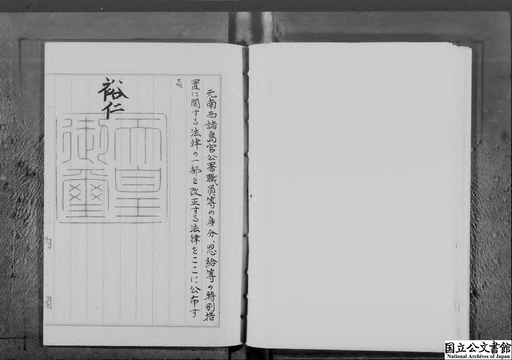 元南西諸島官公署職員等の身分、恩給等の特別措
置に関する法律の一部を改正する法律をここに公布す
る。
裕仁
天皇
御璽
国立公文書館
National Archives of Japan